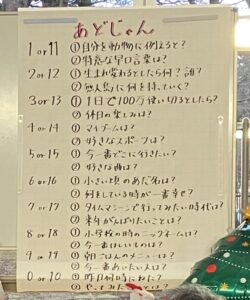 あどじゃん
1 or 11 ①自分を動物に例えると?
②得意な早口言葉は?
2 or 12 ①生まれ変わるとしたら何?誰?
②無人島に何を持っていく?
3 or 13 ①1日で100万使い切るとしたら?
②休日の楽しみは?
4 or 14 ①マイブームは?
②好きなスポーツは?
5 or 15 ①今一番どこに行きたい?
②好きな曲は?
6 or 16 ①小さい頃のあだ名は?
②何をしている時が一番幸せ?
7 or 17 ①タイムマシーンで行ってみたい時代は?
②来年がんばりたいことは?
8 or 18 ①小学校の時のニックネームは?
②今一番ほしいものは?
9 or 19 ①朝ごはんのメニューは?
②今一番あいたい人は?
0 or 10 ①昨日何時にねた?